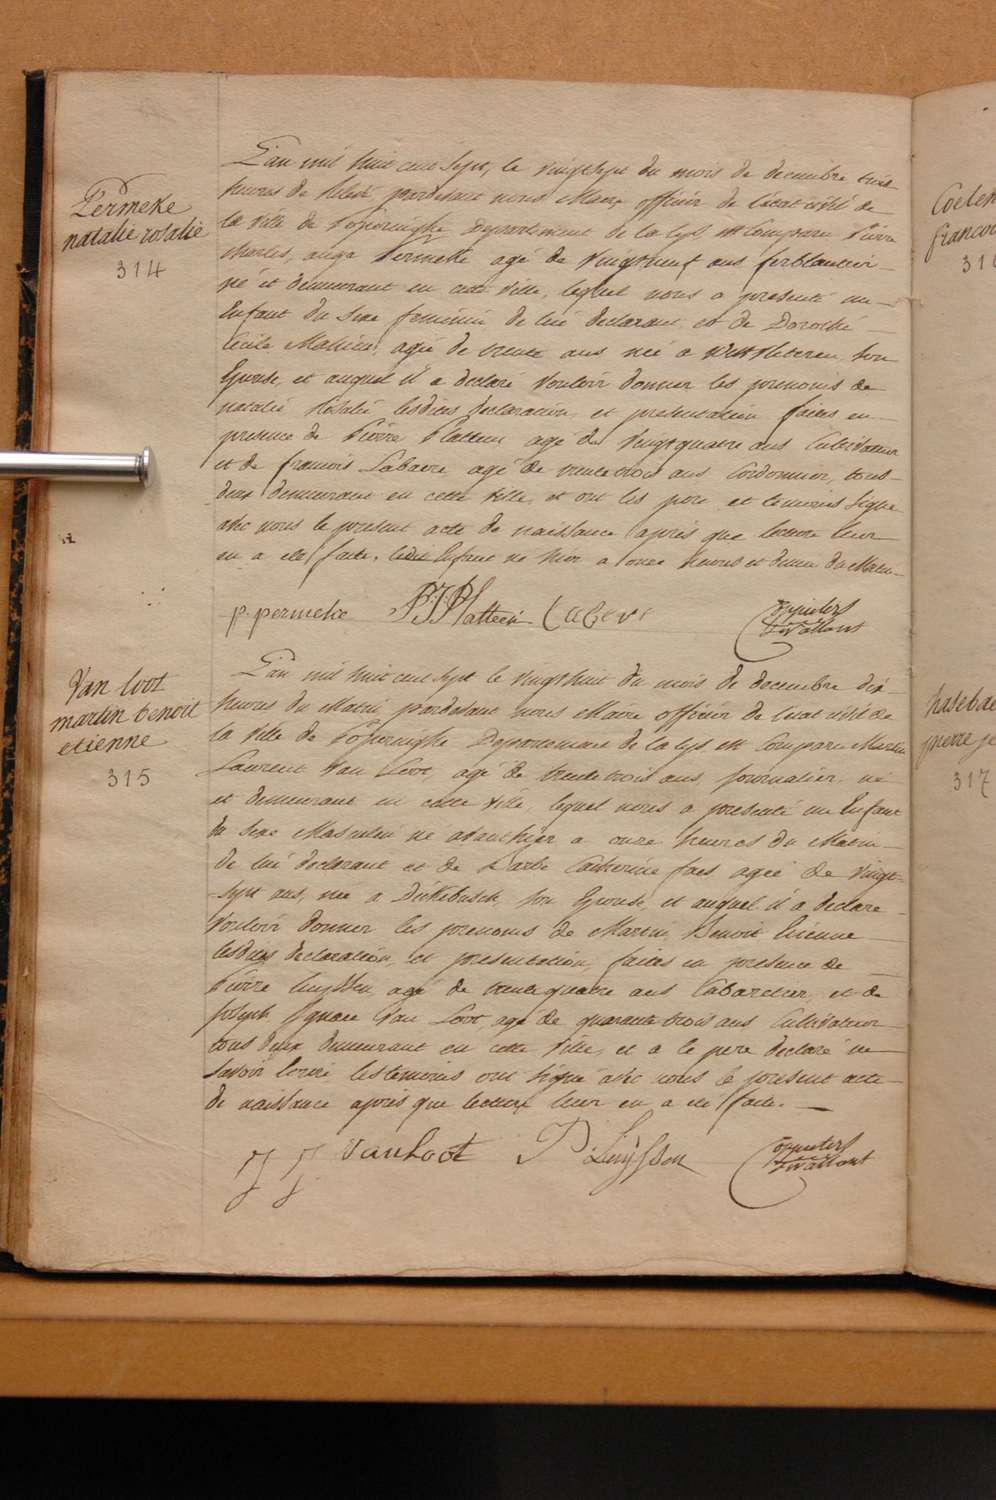 Permeke
natalie rosalie
314
L'an mil huit cent sept, le vingtsept du mois de decembre trois
heures de relevé pardevant nous Maire officier de l'état civil de
la ville de Poperinghe Departement de la Lys est Comparu Pierre
charles, Permeke agé de vingtneuf ans ferblantier
né et demeurant en cette ville, lequel nous a presenté un
Enfant du sexe feminin de lui declarant, et de Dorothé
Cécile agée de trente ans née a Westvleteren, son
Epouse, et auquel il a declaré vouloir donner les prenoms de
natalie Rosalie lesdites declaration, et presentation faites en
presence de Pierre Platteeu agé de vingtquatre ans Cultivateur
et de francois Labaere agé de trentetrois ans Cordonnier, tous
deux demeurant en cette ville, et ont les pere et temoins signé
avec nous le present acte de naissance après que lecture leur
en a eté faite, ledit Enfant né hier a onze heures et demi du Matin
p. permeke PJPlatteeu Labere
Van loot
martin benoit
etienne
315
L'an mil huit cent sept le vingthuit du mois de decembre dix
heures du Matin pardevant nous Maire officier de l'état civil de
la ville de Poperinghe Departement de la Lys est Comparu Martin
Laurent Van Loot, agé de trentetrois ans journalier, né
et demeurant en cette ville, lequel nous a presenté un Enfant
du sexe Masculin né avanthier a onze heures du Matin
de lui declarant et de Barbe Catherine faes agée de vingt
sept ans, née a Dickebusch, son Epouse, et auquel il a declaré
vouloir donner les prenoms de Martin, Benoit Etienne
lesdites declaration, et presentation, faites en presence de
Pierre Luyssen, agé de trentequatre ans Cabaretier, et de
Joseph Ignace Van Loot, agé de quarantetrois ans Cultivateur
tous deux demeurant en cette ville, et a le pere declaré ne
savoir ecrire, les temoins ont signé avec nous le present acte
de naissance après que lecture leur en a eté faite.
J J Vanloot P Luÿssen
Coelen
francoi
316
hasebae
pierre je
317